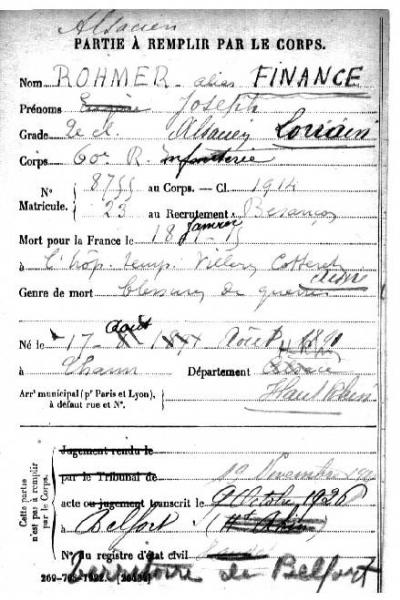 Alsacien
PARTIE À REMPLIR PAR LE CORPS.
Nom ROHMER alias FINANCE
Prénoms Joseph
Grade 2e cl. Alsacien Lorrain
Corps 60e R. Infanterie
N° Matricule. { 8755 au Corps. — Cl. 1914
23 au Recrutement Besançon
Mort pour la France le 18 janvier 15
à l'hôp. temp. Villers Cotterets
Aisne
Genre de mort blessures de guerre
Né le 17 Août 1890
à Thann Département Alsace
Haut Rhin
Arr^t municipal (p^r Paris et Lyon),
à défaut rue et N°.
Cette partie n'est pas à remplir par le Corps.
Jugement rendu le
par le Tribunal de Novembre
acte ou jugement transcrit le 9 Octobre 1926
à Belfort
N° du registre d'état civil
Territoire de Belfort